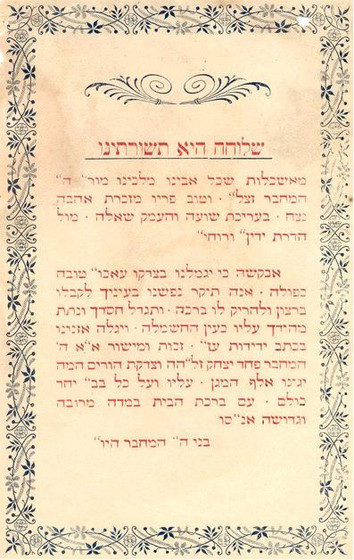 שלוחה היא תשורתינו
מאשכלות שכל אבינו מלבינו מור״ ה״
המחבר זצל״ · וטוב פריו מזכרת אהבה
נצח · בעריכת שועה והעמק שאלה · מול
הדרת ידין״ ורוחי״
אבקשה כי יגמלנו בצדקו עאכו״ טובה
כפולה · אנה תיקר נפשנו בעיניך לקבלו
ברצון ולהריק לו ברכה · ותגדל חסדך ונתת
מהודך עליו כעין החשמלה · ויגלה אזנינו
בכתב ידידות עט״ · זכות ומישור א״א ה״
המחבר פחד יצחק זל״הה וצדקת הורים המה
יגינו אלף המגן · עליו ועל כל בב״ יחד
כולם · עם ברכת הבית במדה מרובה
וגדושה אנ״סו
בני ה״ המחבר היו״